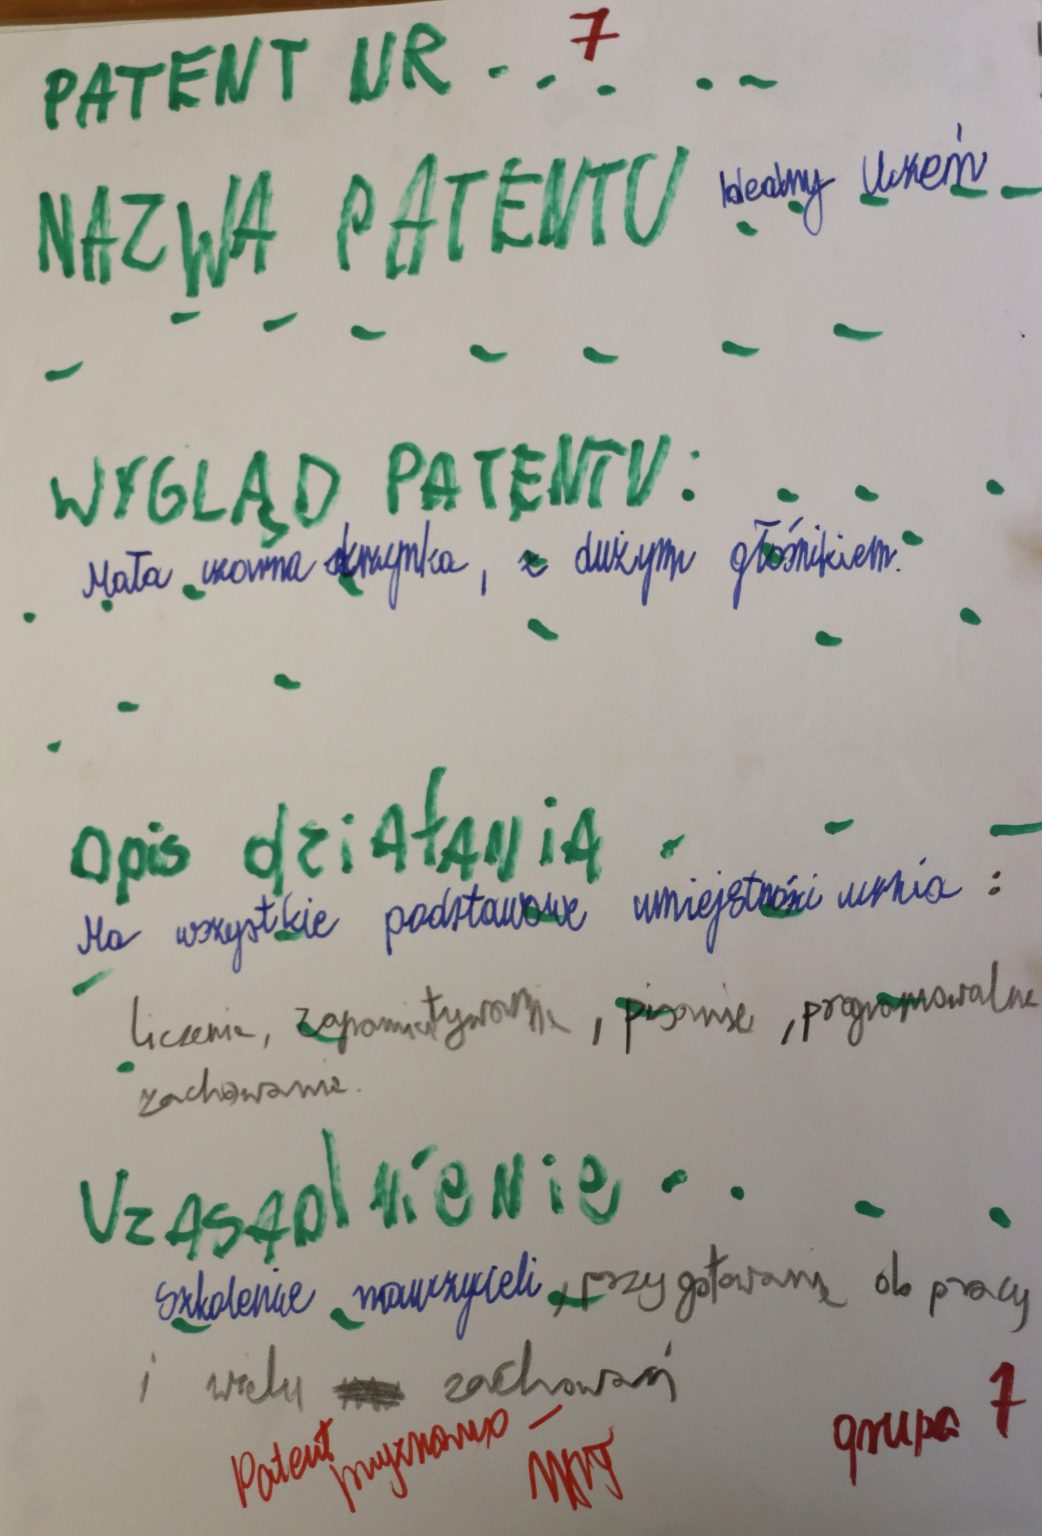 PATENT NR 7
NAZWA PATENTU Idealny Uczeń
WYGLĄD PATENTU:
Mała czarna skrzynka, z dużym głośnikiem.
Opis działania
Ma wszystkie podstawowe umiejętności ucznia :
liczenie, zapamiętywanie, pisanie, programowalne
zachowanie.
Uzasadnienie
Szkolenie nauczycieli, przygotowanie do pracy
i wielu zachowań
Patent przyznano -
grupa 7